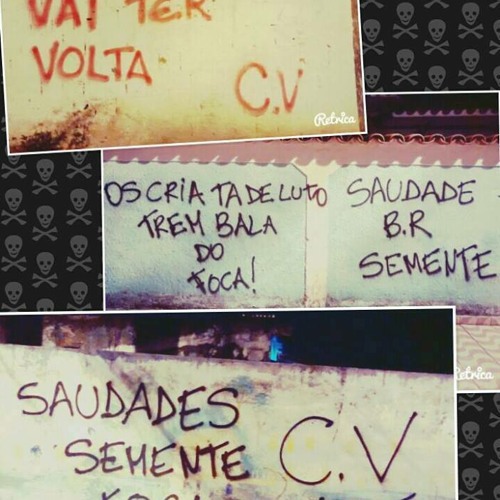 VAI TER
VOLTA
C.V
Retrica
OS CRIA TA DE LUTO
TREM BALA
DO
FOCA!
SAUDADE
B.R
SEMENTE
Retrica
SAUDADES
SEMENTE
C.V